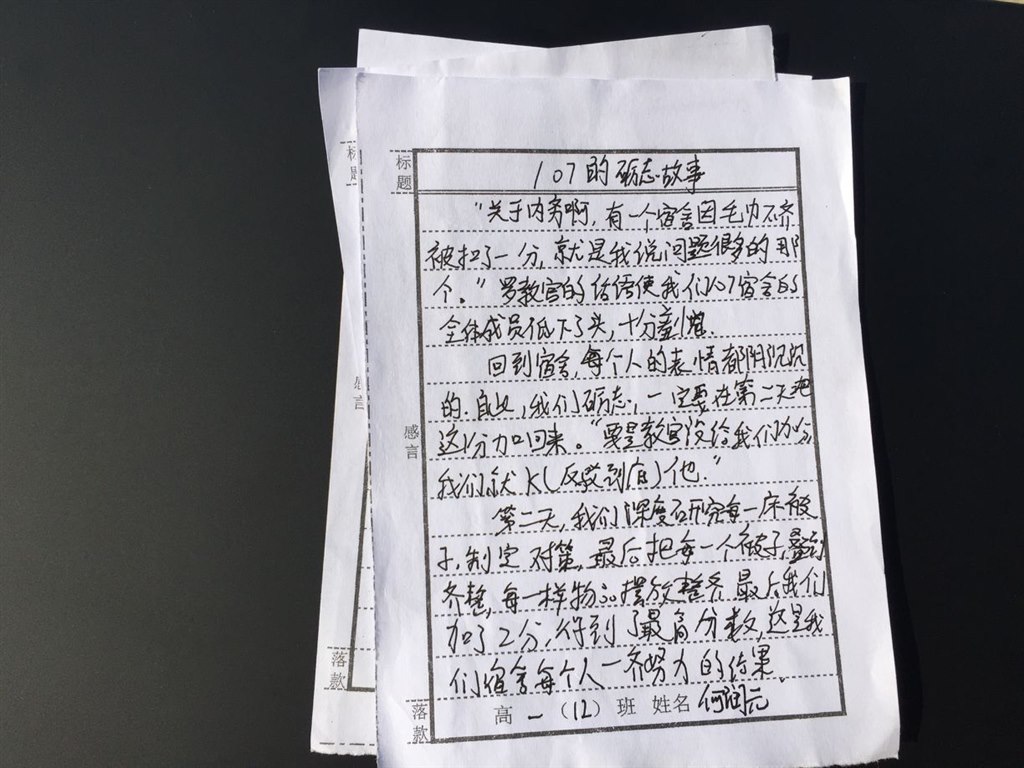 标题
107的砺志故事
"关于内务啊,有一个宿舍因毛巾不齐
被扣了一分,就是我说问题很多的那
个。"罗教官的话语使我们107宿舍的
全体成员低下了头,十分尴尬.
回到宿舍,每个人的表情都阴沉沉
的.自此,我们砺志,一定要在第二天把
这1分加回来。"要是教官没给我们加分
我们就K(反驳到底)他."
第二天,我们深度研究每一床被
子,制定对策,最后把每一个被子叠到
齐整,每一样物品摆放整齐最后我们
加了2分,得到了最高分数,这是我
们宿舍每个人一齐努力的结果.
感言
落款
高一(12)班 姓名 何润元
标题
感言
落款